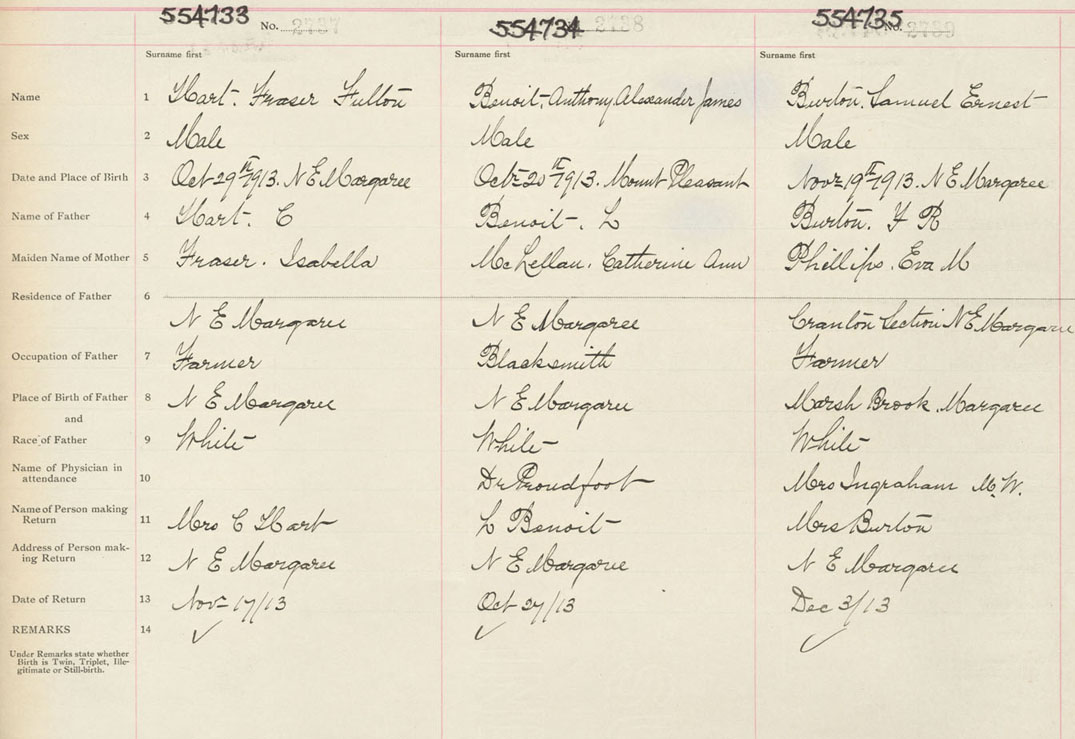 554733 No. 2737 554734 2738 554735 No. 2739
Surname first Surname first Surname first
Name 1 Hart. Fraser Fulton Benoit. Anthony Alexander James Burton. Samuel Ernest
Sex 2 Male Male Male
Date and Place of Birth 3 Oct 29th 1913. N E Margaree Octr 20th 1913. Mount Pleasant Novr 19th 1913. N E Margaree
Name of Father 4 Hart. C Benoit. L Burton. F R
Maiden Name of Mother 5 Fraser. Isabella McLellan. Catherine Ann Phillips. Eva M
Residence of Father 6
N E Margaree N E Margaree Cranton Section N E Margaree
Occupation of Father 7 Farmer Blacksmith Farmer
Place of Birth of Father 8 N E Margaree N E Margaree Marsh Brook. Margaree
and
Race of Father 9 White White White
Name of Physician in
attendance 10 Dr Proudfoot Mrs Ingraham M.W.
Name of Person making
Return 11 Mrs C Hart L Benoit Mrs Burton
Address of Person mak-
ing Return 12 N E Margaree N E Margaree N E Margaree
Date of Return 13 Novr 17/13 Oct 27/13 Dec 3/13
REMARKS 14 ✓ ✓ ✓
Under Remarks state whether
Birth is Twin, Triplet, Ille-
gitimate or Still-birth.